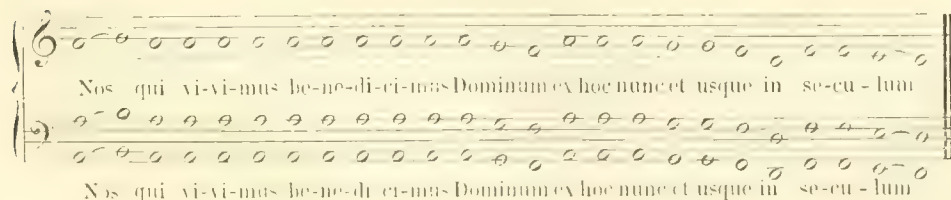 Nos qui vi-vi-mus be-ne-di-ci-mus Dominum ex hoc nunc et usque in se-cu-lum
Nos qui vi-vi-mus be-ne-di ci-mus Dominum ex hoc nunc et usque in se-cu-lum